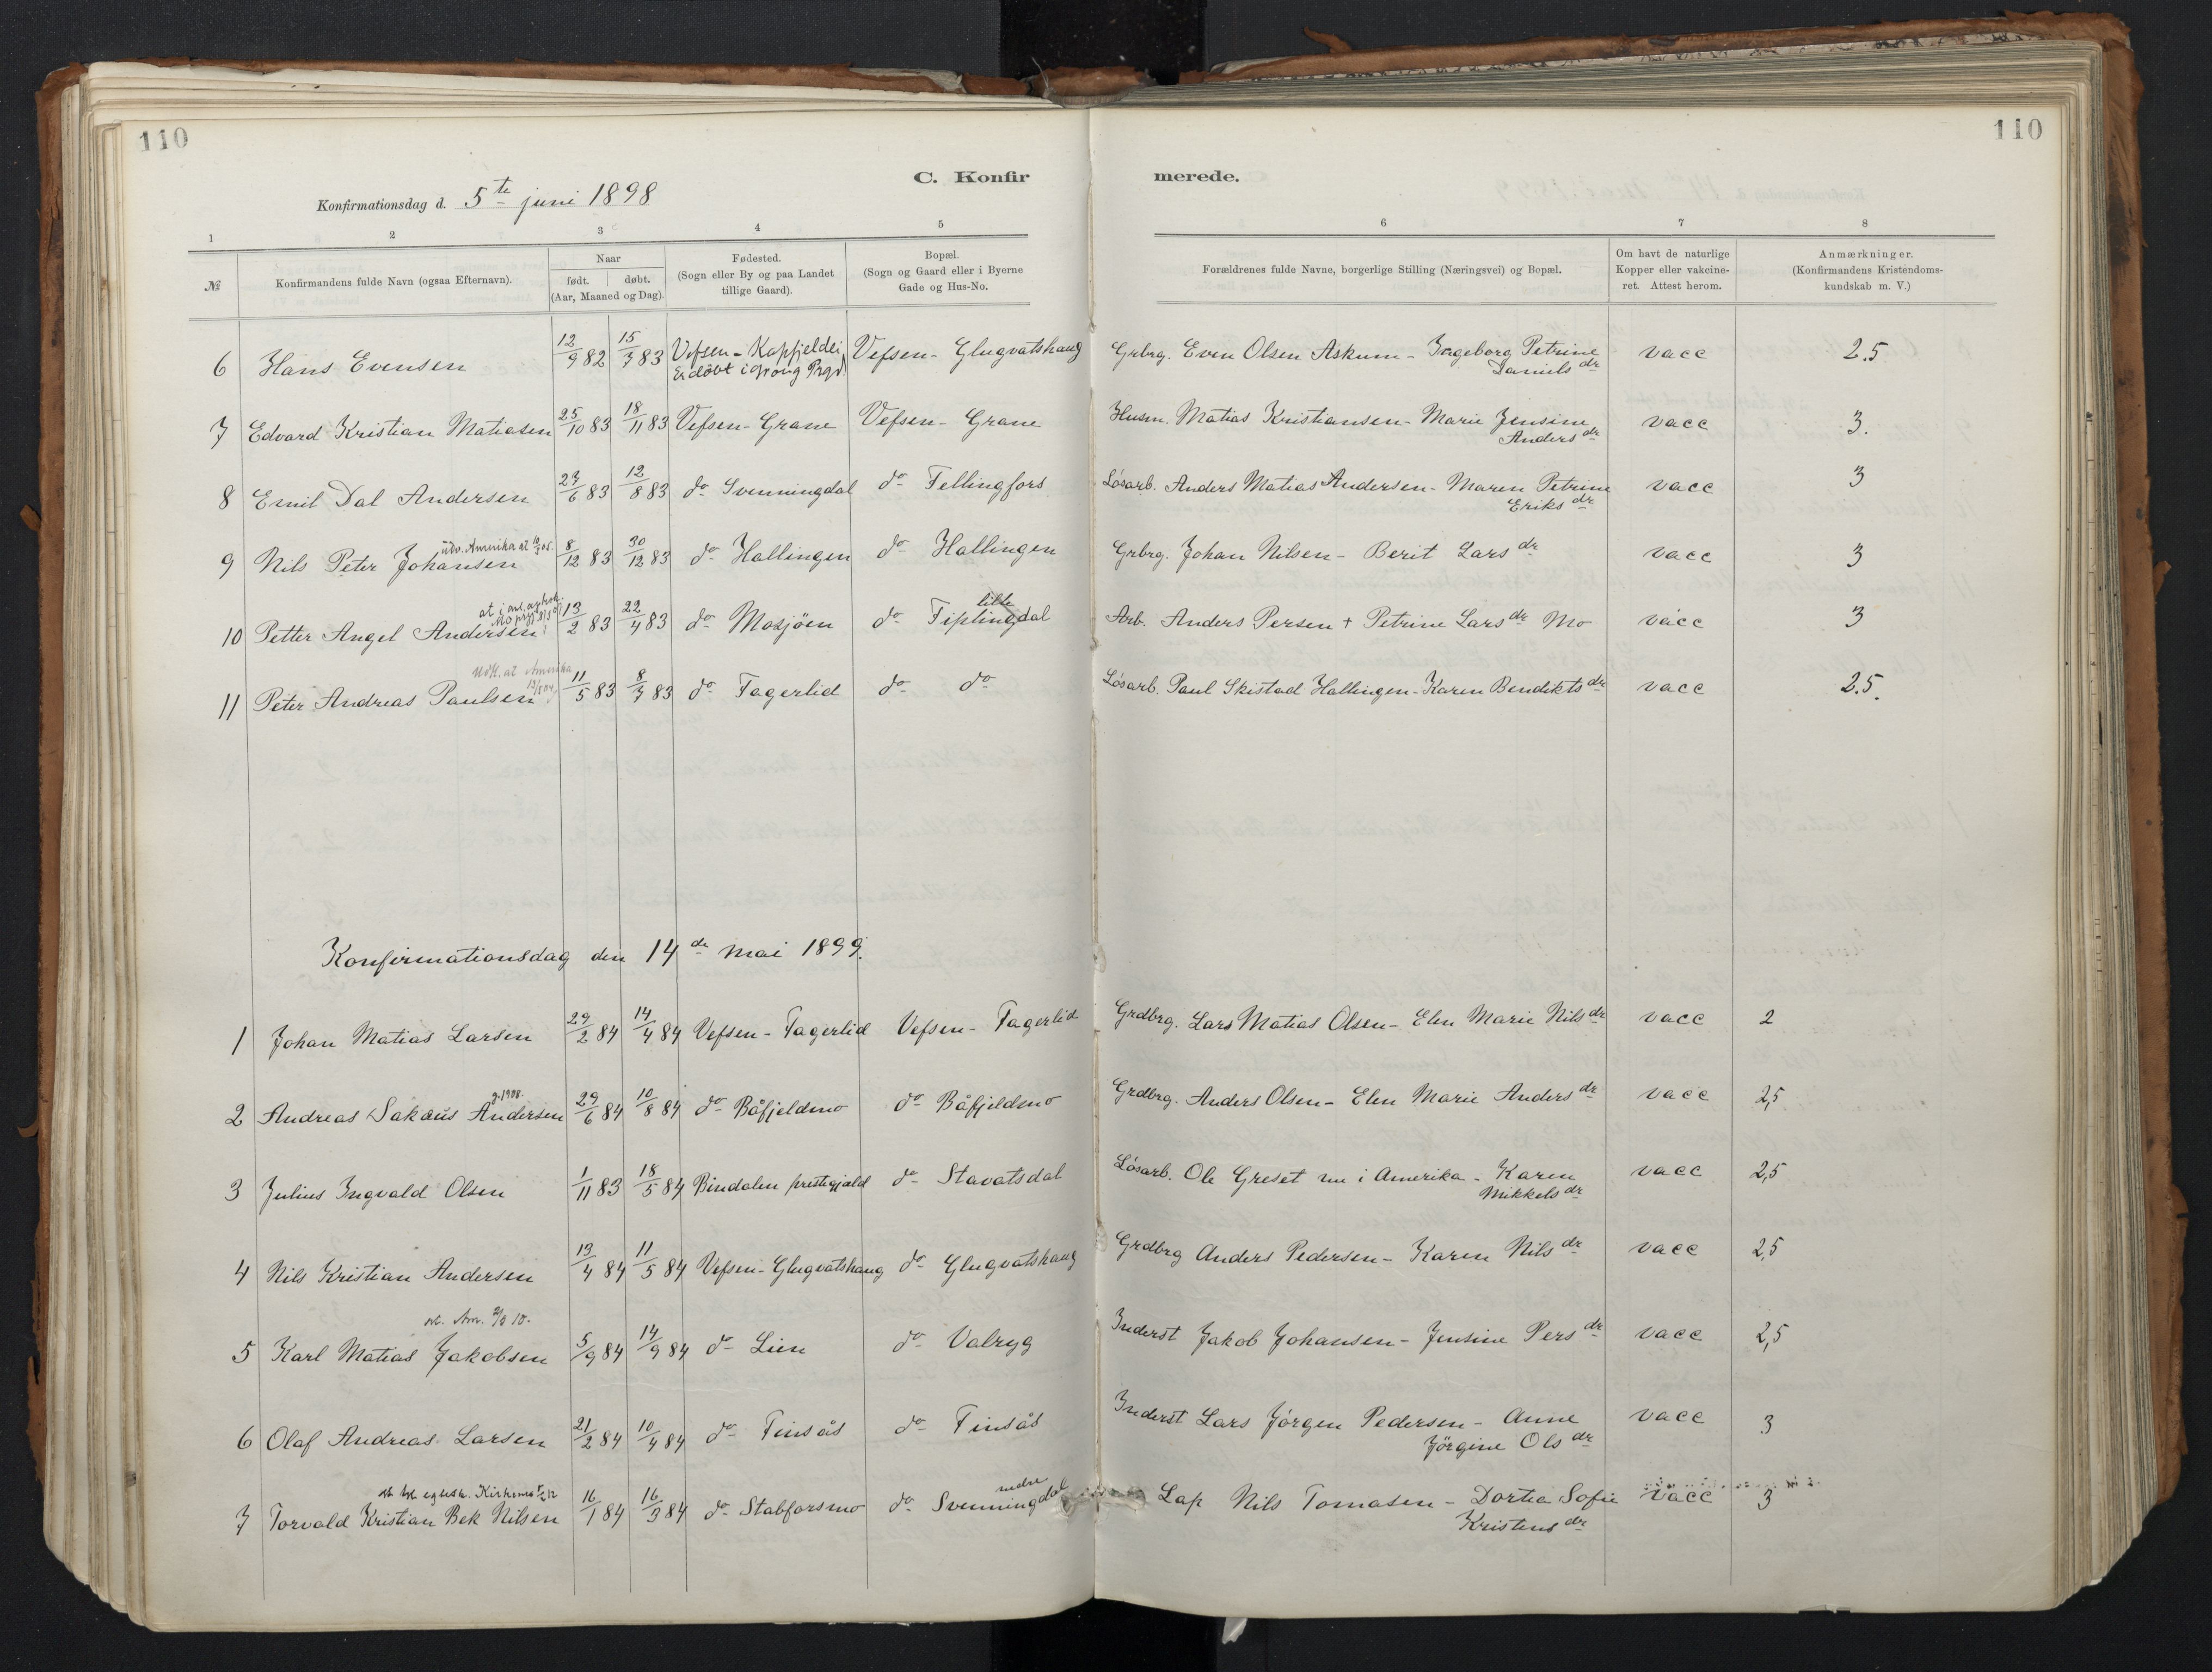 110
110
C. Konfir
merede.
Konfirmationsdag d. 5te juni 1898
1 2 3 4 5 6 7 8
№
Konfirmandens fulde Navn (ogsaa Efternavn).
Naar
født. døbt.
(Aar, Maaned og Dag).
Fødested.
(Sogn eller By og paa Landet
tillige Gaard).
Bopæl.
(Sogn og Gaard eller i Byerne
Gade og Hus-No.
Forældrenes fulde Navne, borgerlige Stilling (Næringsvei) og Bopæl.
Om havt de naturlige
Kopper eller vakcine-
ret. Attest herom.
Anmærkninger.
(Konfirmandens Kristendoms-
kundskab m. V.)
6 Hans Evensen 12/9 82 15/7 83 Vefsen - Kapfjeldli Vefsen - Glugvatshaug Grbrg. Even Olsen Askum - Ingeborg Petrine vacc 2.5
Er døbt i Grong Prgd Daniels dr
7 Edvard Kristian Matiasen 25/10 83 18/11 83 Vefsen - Grane Vefsen - Grane Husm. Matias Kristiansen - Marie Jensine vacc 3.
Anders dr
8 Emil Dal Andersen 27/6 83 12/8 83 do Svenningdal do Fellingfors Løsarb. Anders Matias Andersen - Maren Petrine vacc 3
Eriks dr
udv. Amerika at
9 Nils Peter Johansen 8/12 83 30/12 83 do Hallingen do Hallingen Grbrg. Johan Nilsen - Berit Lars dr vacc 3
at i anl.
lille
10 Petter Angel Andersen 13/2 83 22/4 83 do Mosjøen do Fiplingdal Arb. Anders Persen + Petrine Lars dr Mo vacc 3
Udst. at Amerika
11 Peter Andreas Paulsen 11/5 83 8/7 83 do Fagerlid do do Løsarb. Paul Skistad Hallingen - Karen Bendikts dr vacc 2.5.
Konfirmationsdag den 14de mai 1899.
1 Johan Matias Larsen 29/2 84 14/4 84 Vefsen - Fagerlid Vefsen - Fagerlid Grdbrg. Lars Matias Olsen - Elen Marie Nils dr vacc 2
g. 1908.
2 Andreas Sakaus Andersen 29/6 84 10/8 84 do Båfjeldmo do Båfjeldmo Grdbrg. Anders Olsen - Elen Marie Anders dr vacc 2,5
3 Julius Ingvald Olsen 1/11 83 18/5 84 Bindalen prestegjæld do Stavatsdal Løsarb. Ole Greset nu i Amerika - Karen vacc 2,5
Mikkels dr
4 Nils Kristian Andersen 13/4 84 11/5 84 Vefsen - Glugvatshaug do Glugvatshaug Grdbrg Anders Pedersen - Karen Nils dr vacc 2,5
Am. 10.
5 Karl Matias Jakobsen 5/9 84 14/9 84 do Lien do Valryg Inderst Jakob Johansen - Jensine Pers dr vacc 2,5
6 Olaf Andreas Larsen 21/2 84 10/4 84 do Finsås do Finsås Inderst Lars Jørgen Pedersen - Anne vacc 3
Jörgine Ols dr
Kirkenes 12
nedre
7 Torvald Kristian Bek Nilsen 16/1 84 16/3 84 do Stabforsmo do Svenningdal Lap Nils Tomasen - Dortea Sofie vacc 3
Kristens dr